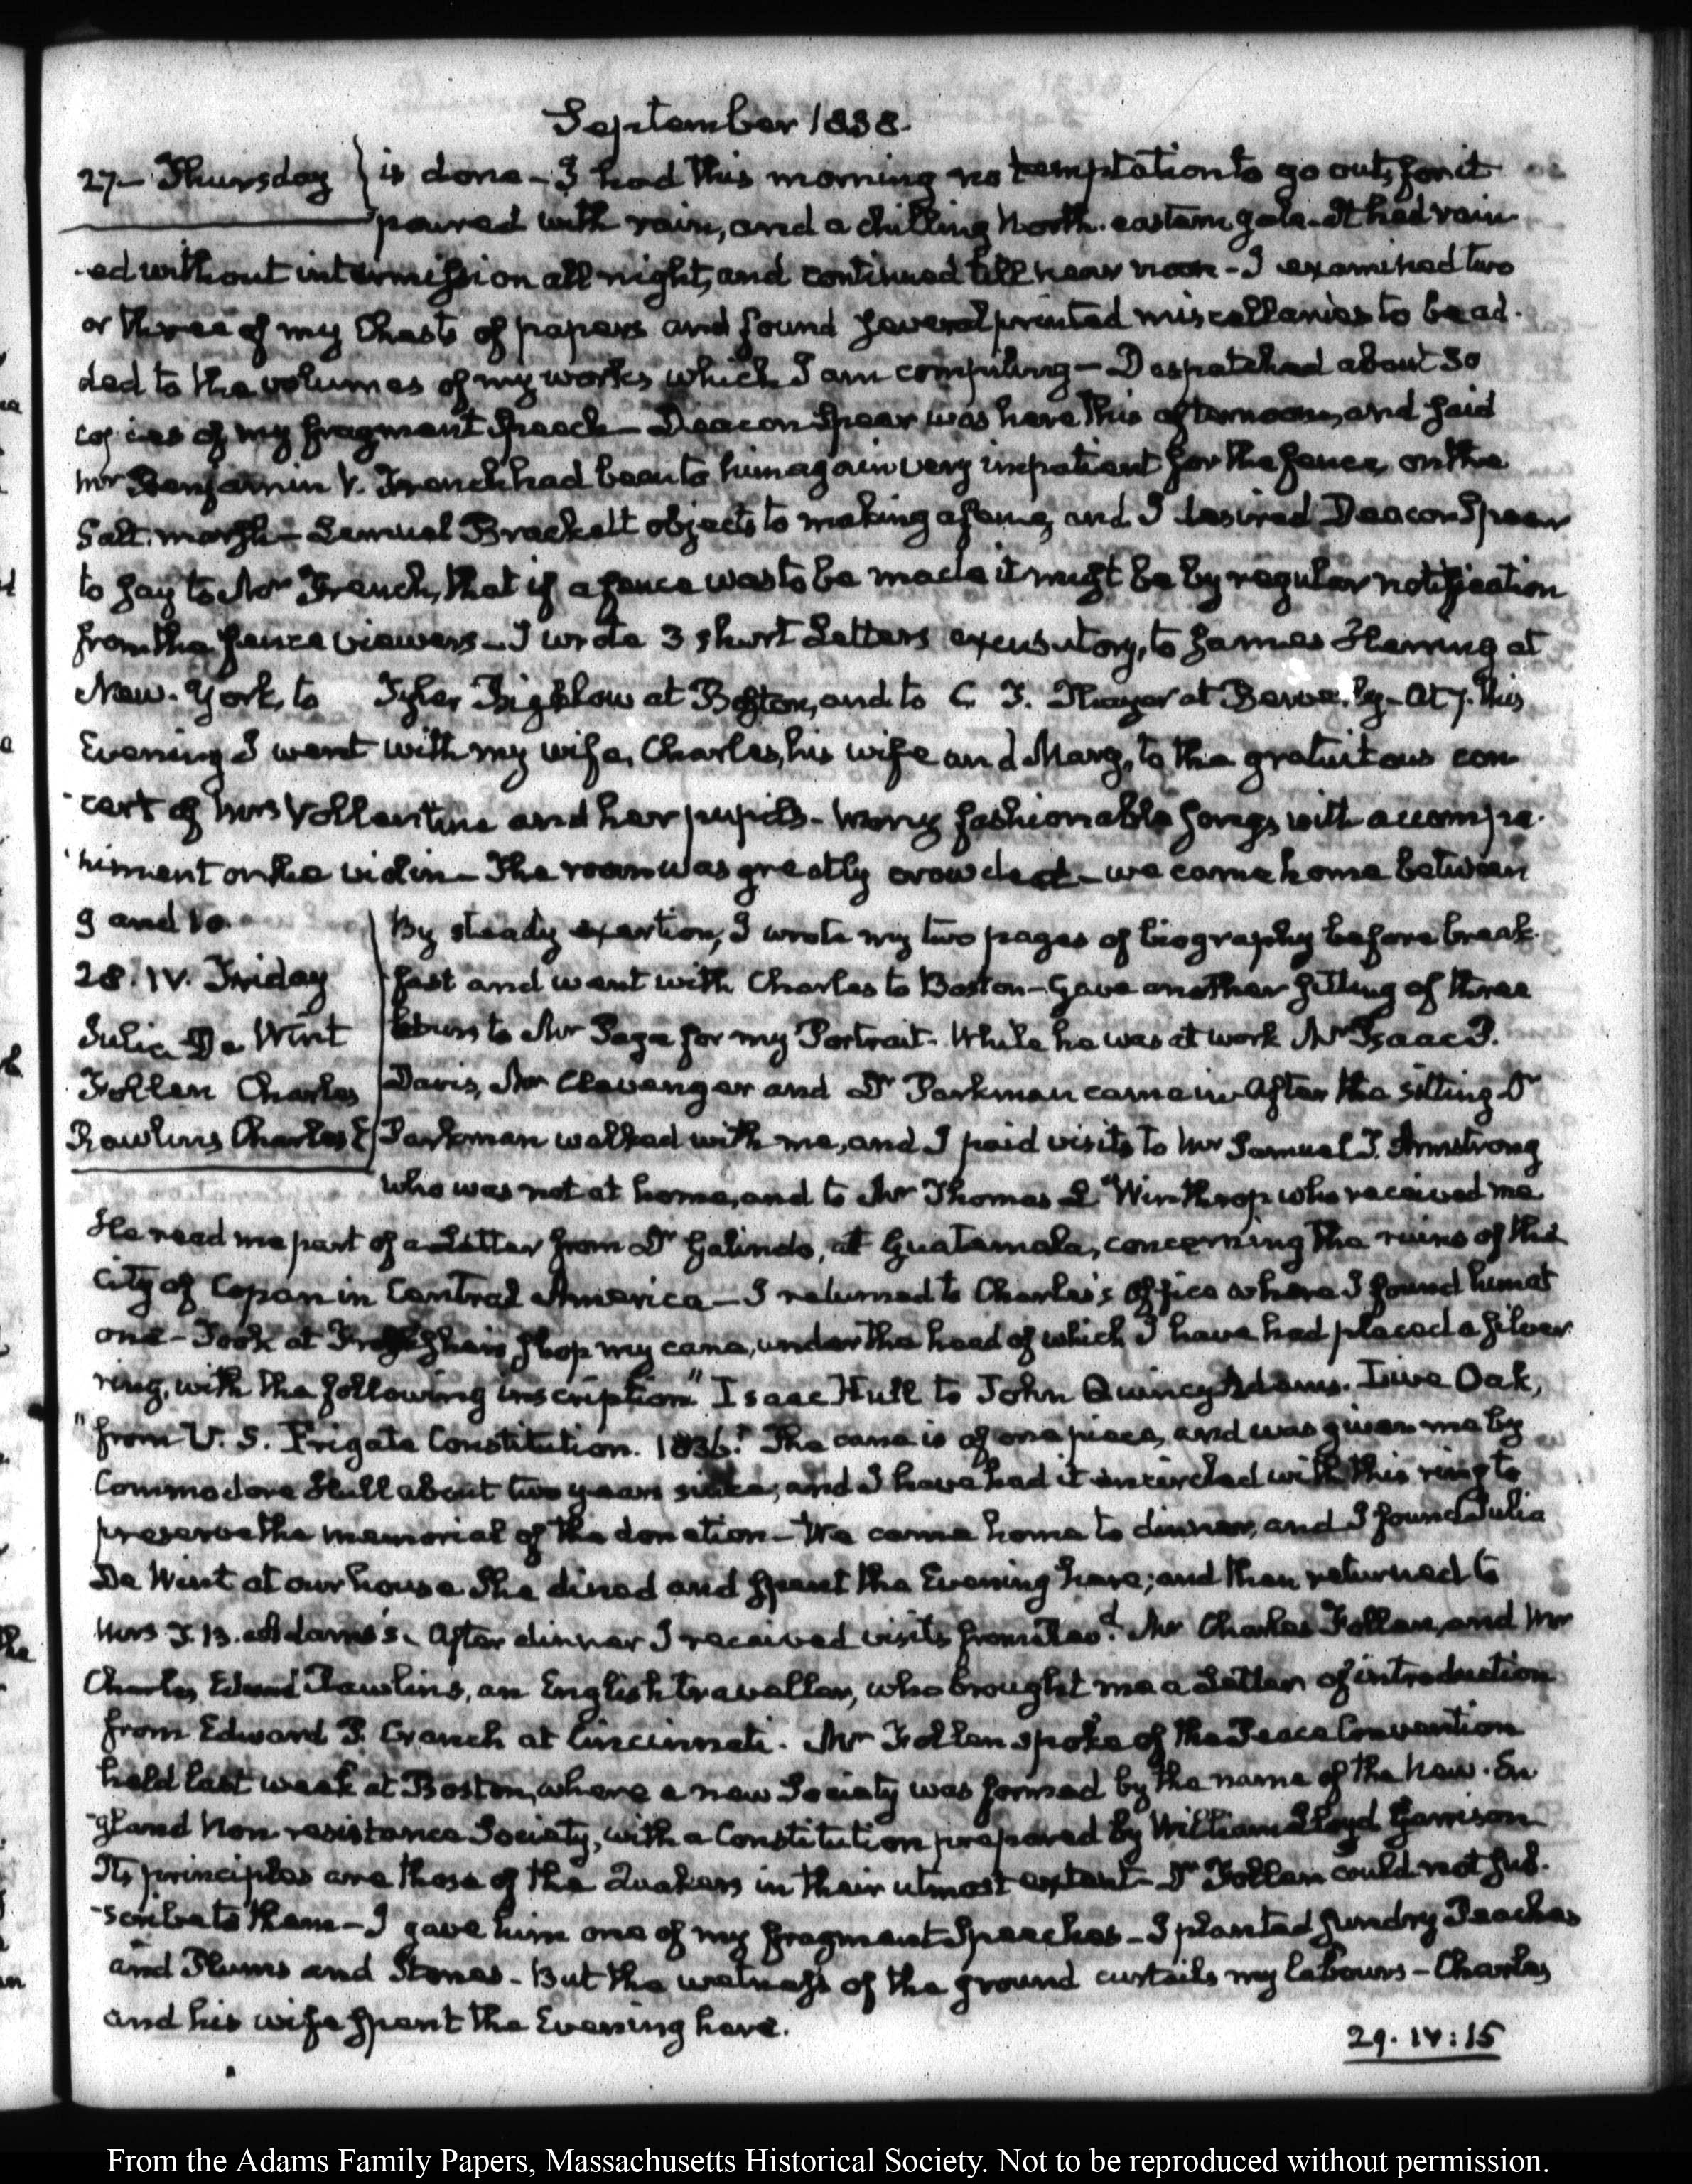 September 1838.
27— Thursday is done— I had this morning no temptation to go out, for it
poured with rain, and a chilling North-eastern gale. It had rain-
-ed without intermission all night, and continued till near noon— I examined two
or three of my Chests of papers and found several printed miscellanies to be ad-
ded to the volumes of my works which I am compiling— Despatched about 30
copies of my fragment speech— Deacon Spear was here this afternoon, and said
Mr Benjamin V. French had been to him again very impatient for the fence, on the
Salt-marsh— Lemuel Brackett objects to making a fence, and I desired Deacon Spear
to say to Mr French, that if a fence was to be made it might be by regular notification
from the fence viewers— I wrote 3 short Letters excusatory, to James Herring at
New-York, to Tyler Bigelow at Boston, and to C. T. Thayer at Beverly— At 7. this
Evening I went with my wife, Charles, his wife and Mary, to the gratuitous con-
-cert of Mrs Vollentine and her pupils— Many fashionable songs, with accompa-
niment on the violin— The room was greatly crowded— we came home between
9 and 10.
28. IV. Friday
Julia De Wint
Follen Charles
Rawlins Charles E
By steady exertion, I wrote my two pages of biography before break-
-fast and went with Charles to Boston— Gave another sitting of three
hours to Mr Page for my Portrait. While he was at work Mr Isaac P.
Davis, Mr Clevenger and Dr Parkman came in. After the sitting Dr
Parkman walked with me, and I paid visits to Mr Samuel T. Armstrong
who was not at home, and to Mr Thomas L Winthrop who received me
He read me part of a Letter from Dr Galindo, at Guatamala, concerning the ruins of the
City of Copan in Central America— I returned to Charles's Office where I found him at
one— Took at shop my cane, under the head of which I have had placed a silver
ring, with the following inscription "Isaac Hull to John Quincy Adams. Live Oak,
"from U. S. Frigate Constitution. 1836." The cane is of one piece, and was given me by
Commodore Hull about two years since; and I have had it encircled with this ring to
preserve the memorial of the donation— We came home to dinner, and I found Julia
De Wint at our house. She dined and spent the Evening here; and then returned to
Mrs T. B. Adams's. After dinner I received visits from Revd. Mr Charles Follen, and Mr
Charles Edward Rawlins, an English traveller, who brought me a Letter of introduction
from Edward P. Cranch at Cincinnati. Mr Follen spoke of the Peace Convention
held last week at Boston, where a new Society was formed by the name of the New-En
-gland Non resistance Society, with a Constitution prepared by William Lloyd Garrison
Its principles are those of the Quakers in their utmost extent— Dr Follen could not sub-
-scribe to them— I gave him one of my fragment Speeches— I planted sundry Peaches
and Plums and Stones— But the wetness of the ground curtails my labours— Charles
and his wife spent the Evening here.
29. IV:15
From the Adams Family Papers, Massachusetts Historical Society. Not to be reproduced without permission.